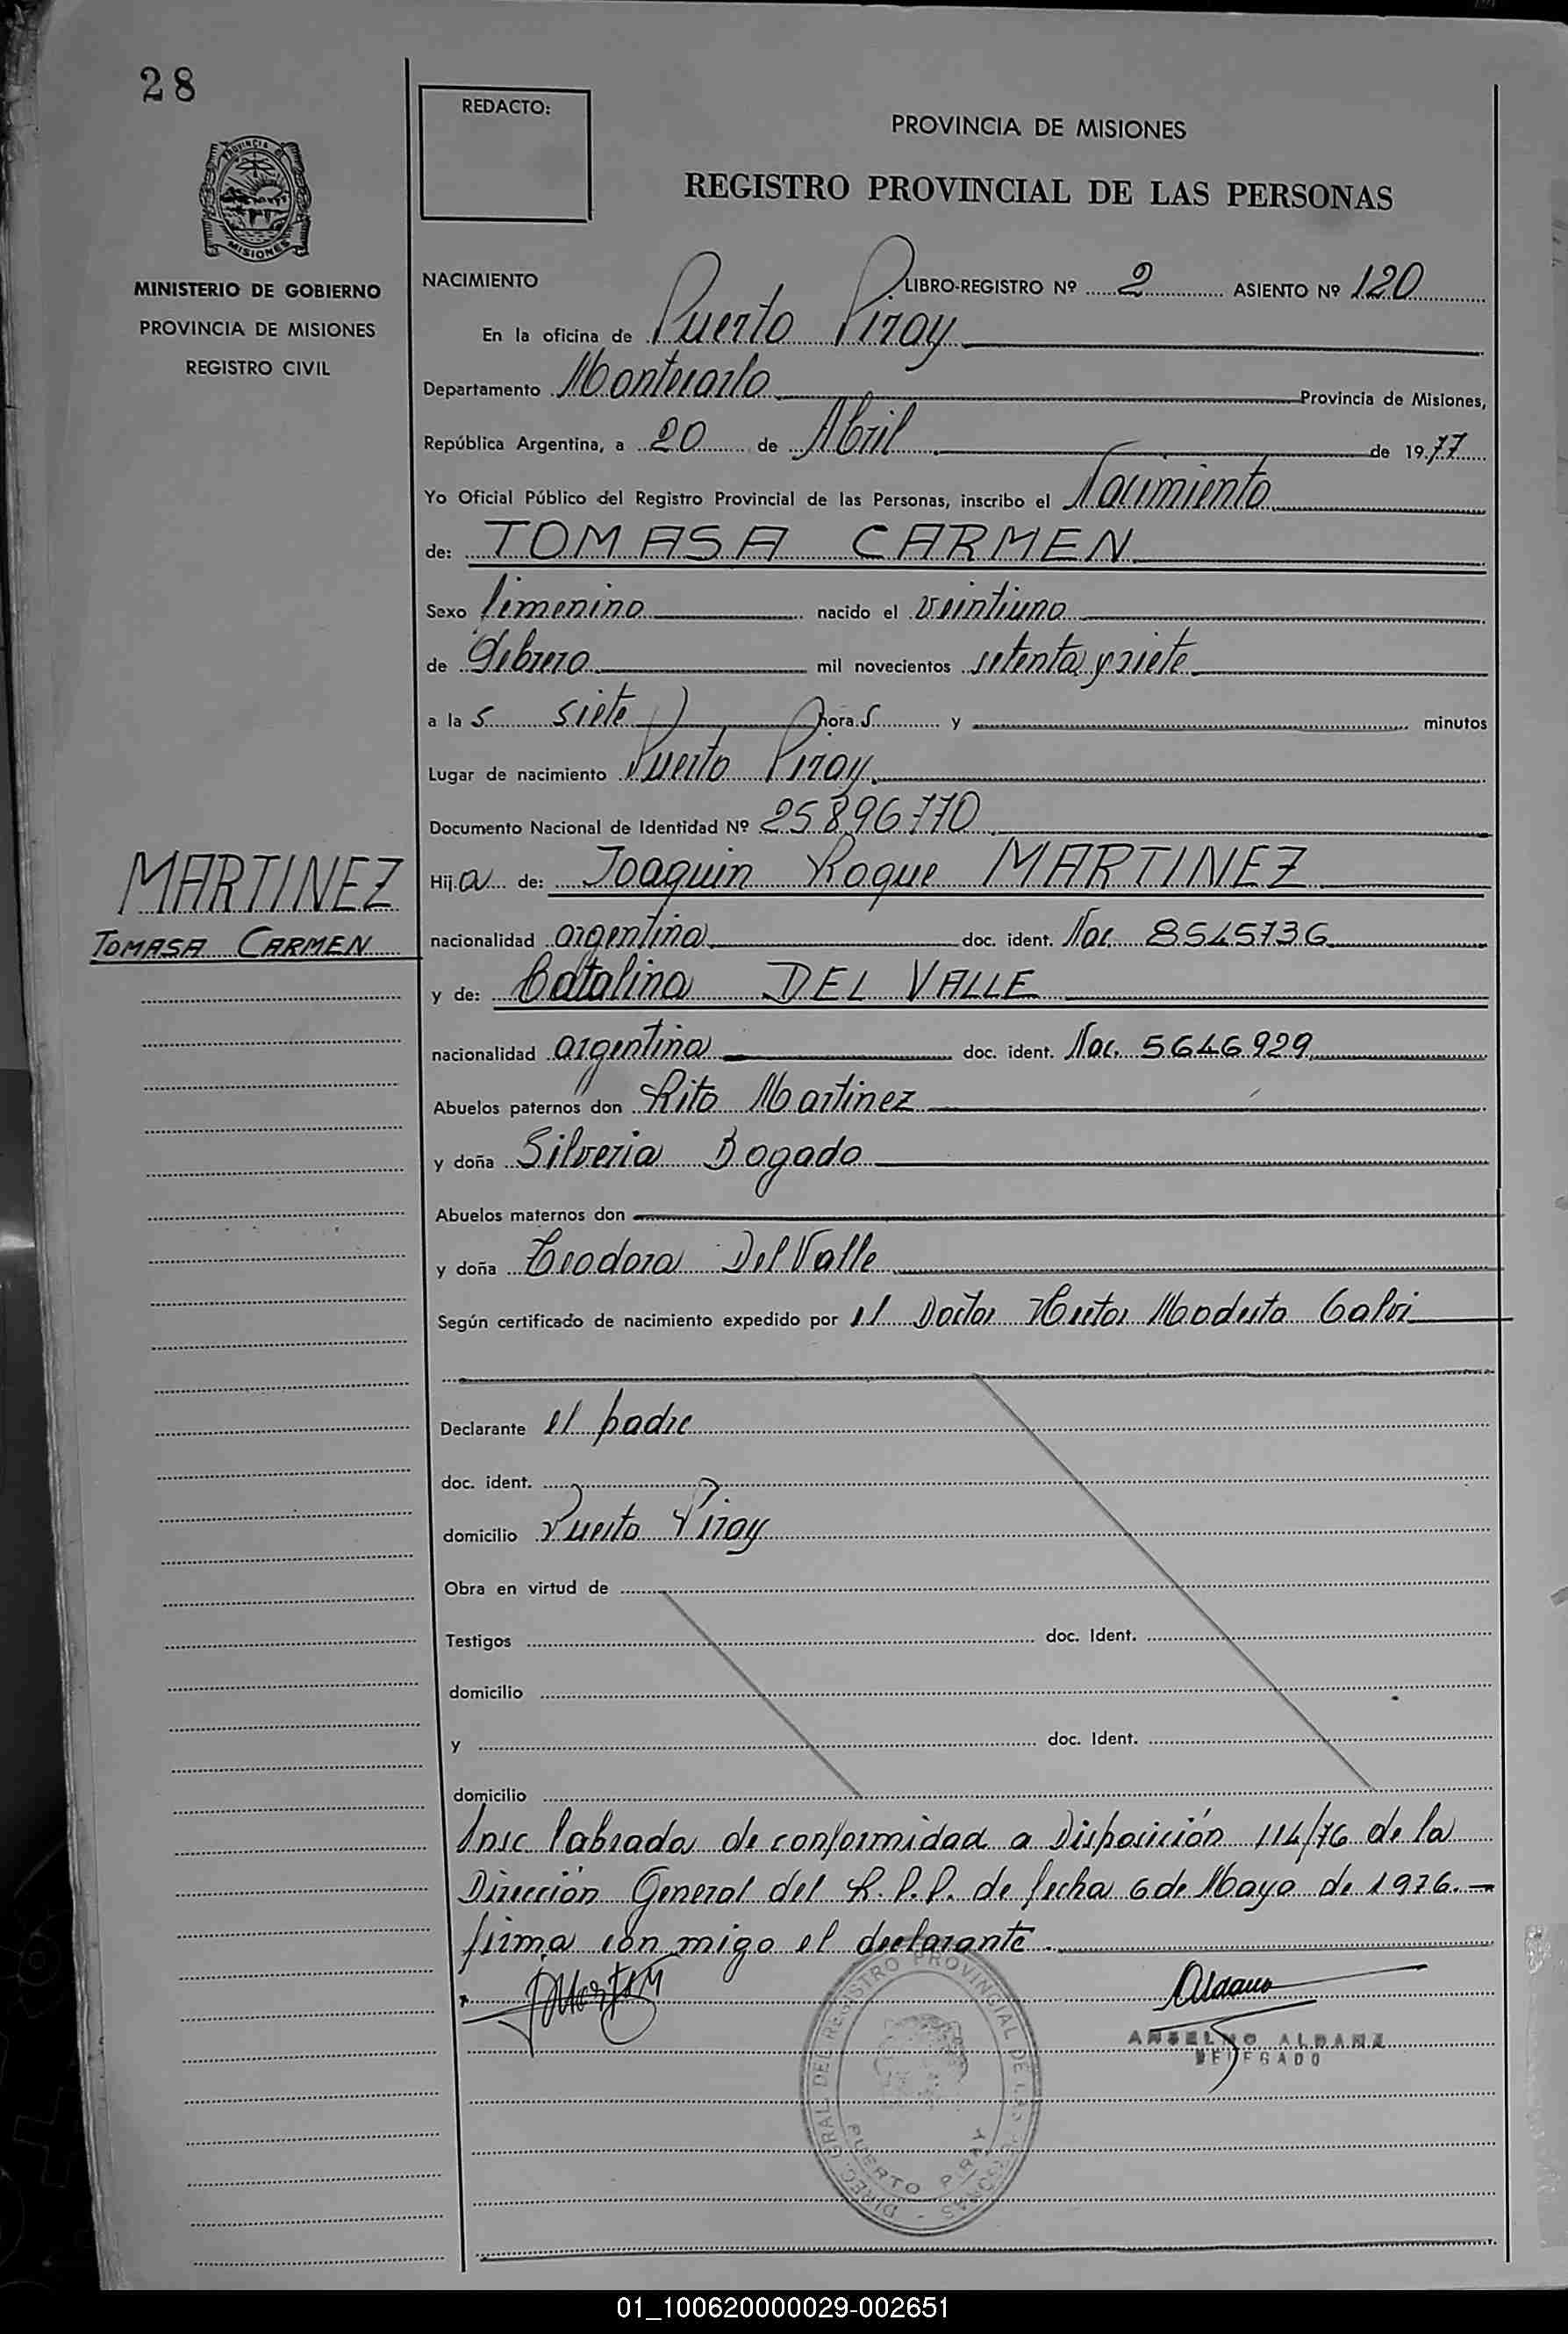 28
REDACTO:
PROVINCIA DE MISIONES
REGISTRO PROVINCIAL DE LAS PERSONAS
PROVINCIA DE MISIONES
MINISTERIO DE GOBIERNO
PROVINCIA DE MISIONES
REGISTRO CIVIL
NACIMIENTO LIBRO-REGISTRO Nº 2 ASIENTO Nº 120
En la oficina de Puerto Piray
Departamento Montecarlo Provincia de Misiones,
República Argentina, a 20 de Abril de 1977
Yo Oficial Público del Registro Provincial de las Personas, inscribo el Nacimiento
de: TOMASA CARMEN
Sexo femenino nacido el veintiuno
de Febrero mil novecientos setenta y siete
a la s siete hora s y minutos
Lugar de nacimiento Puerto Piray
Documento Nacional de Identidad Nº 25896770
MARTINEZ
TOMASA CARMEN
Hij a de: Joaquin Roque MARTINEZ
nacionalidad argentina doc. ident. Nac. 8545736
y de: Catalina DEL VALLE
nacionalidad argentina doc. ident. Nac. 5646929
Abuelos paternos don Rito Martinez
y doña Silveria Bogado
Abuelos maternos don
y doña Teodora Del Valle
Según certificado de nacimiento expedido por el Doctor Hector Modesto Galvi
Declarante el padre
doc. ident.
domicilio Puerto Piray
Obra en virtud de
Testigos doc. Ident.
domicilio
y doc. Ident.
domicilio
Insc. labrada de conformidad a Disposición 114/76 de la
Dirección General del R.P.P. de fecha 6 de Mayo de 1976.-
firma con migo el declarante.
ANSELMO ALDANA
DELEGADO
DIREC. GRAL. DEL REGISTRO PROVINCIAL DE LAS PERSONAS
PUERTO PIRAY
01_100620000029-002651